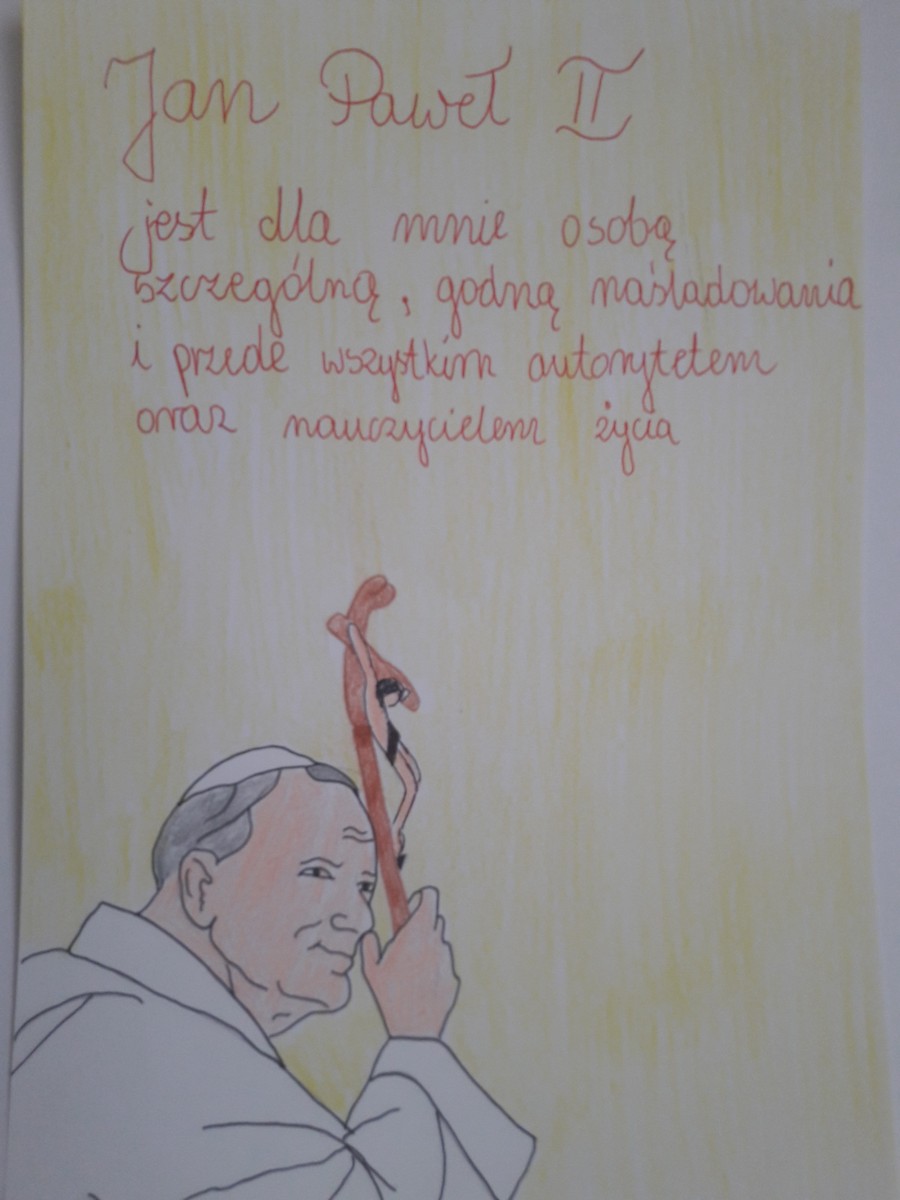 Jan Paweł II
jest dla mnie osobą
szczególną, godną naśladowania
i przede wszystkim autorytetem
oraz nauczycielem życia